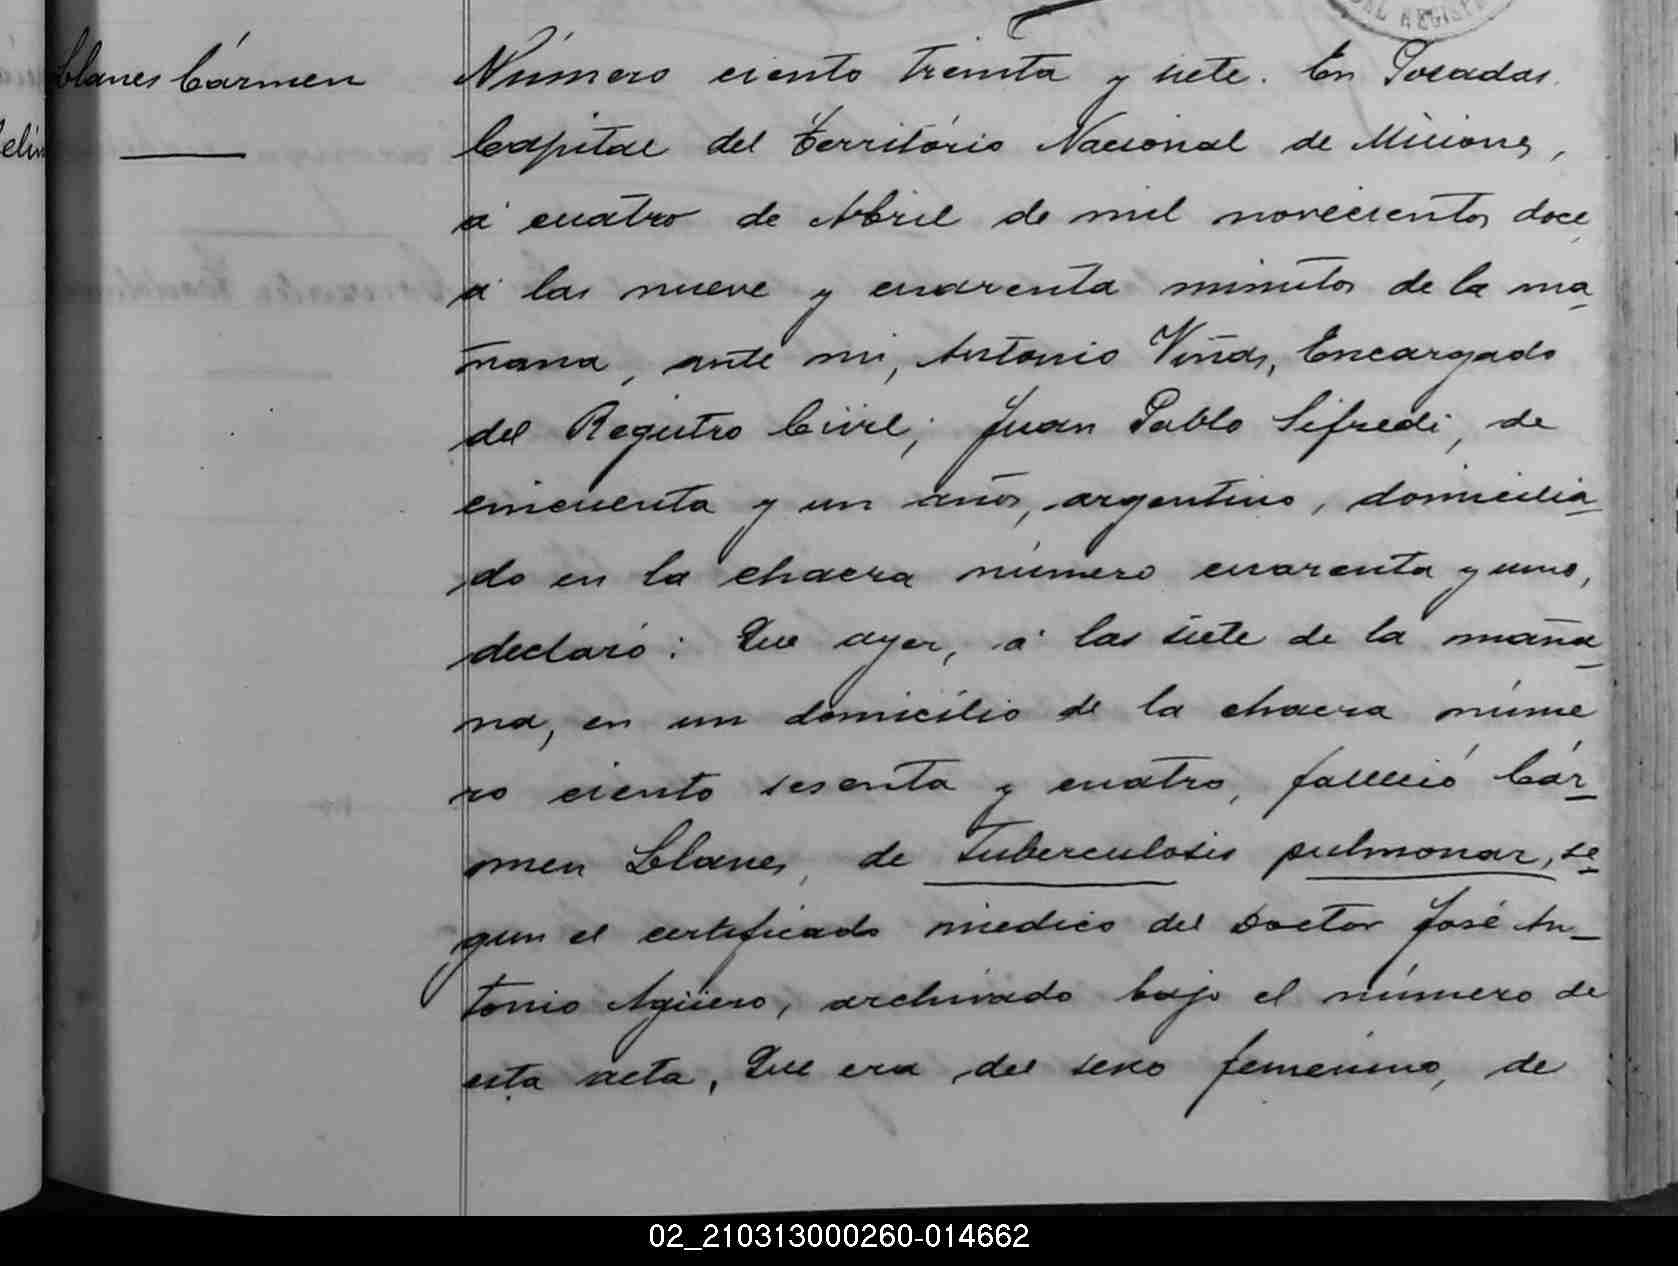 Llanes Cármen
Número ciento treinta y siete. En Posadas
Capital del Território Nacional de Misiones,
á cuatro de Abril de mil novecientos doce
á las nueve y cuarenta minutos de la ma-
ñana, ante mi, Antonio Viñas, Encargado
del Registro Civil; Juan Pablo Sifredi, de
cincuenta y un años, argentino, domicilia-
do en la chacra número cuarenta y uno,
declaró: Que ayer, á las siete de la maña-
na, en un domicilio de la chacra núme
ro ciento sesenta y cuatro, falleció Cár-
men Llanes, de Tuberculosis pulmonar, se-
gun el certificado médico del Doctor José An-
tonio Agüero, archivado bajo el número de
esta acta, Que era del sexo femenino, de
02_210313000260-014662